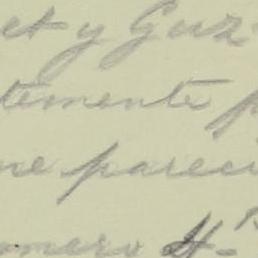 et y Guz
temente p
ne pareci
omero H-